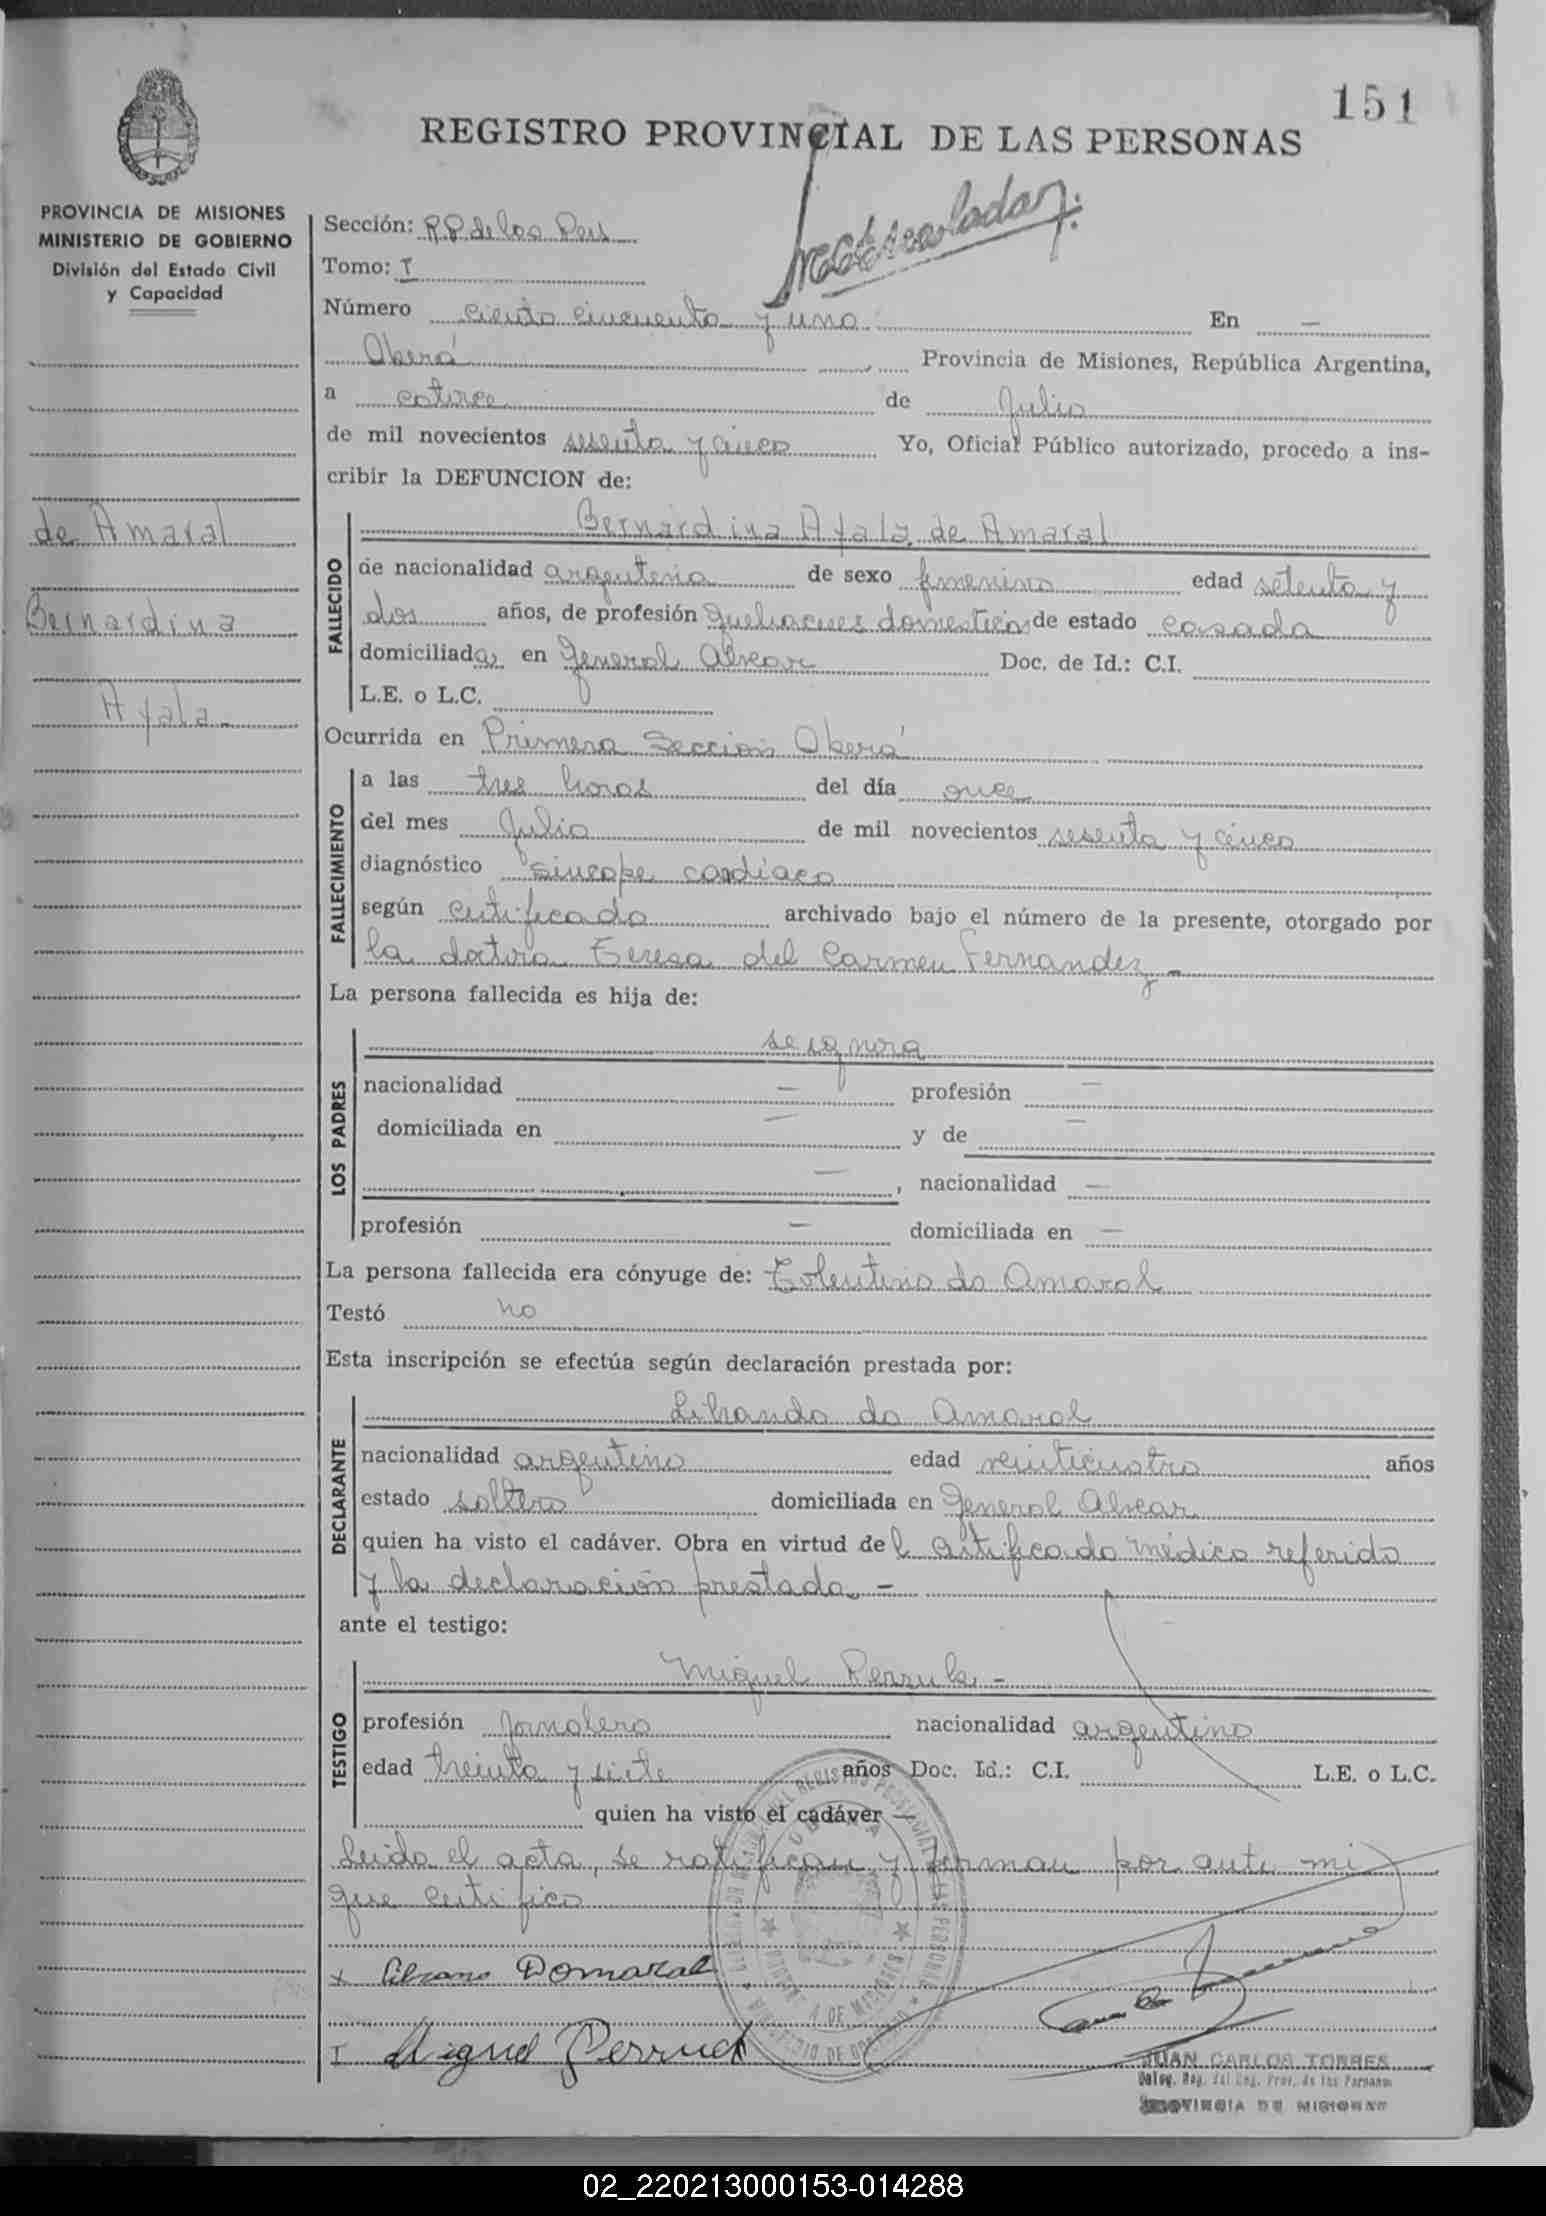 151
REGISTRO PROVINCIAL DE LAS PERSONAS
PROVINCIA DE MISIONES
MINISTERIO DE GOBIERNO
División del Estado Civil
y Capacidad
de Amaral
Bernardina
Ayala-
Sección: R P de las Pers
Tomo: I
Número ciento cincuenta y uno En —
Oberá Provincia de Misiones, República Argentina,
a catorce de Julio
de mil novecientos sesenta y cinco Yo, Oficial Público autorizado, procedo a ins-
cribir la DEFUNCION de:
FALLECIDO
Bernardina Ayala de Amaral
de nacionalidad argentina de sexo femenino edad setenta y
dos años, de profesión quehaceres domesticos de estado casada
domiciliada en General Alvear Doc. de Id.: C.I.
L.E. o L.C.
Ocurrida en Primera Sección Oberá
FALLECIMIENTO
a las tres horas del día once
del mes Julio de mil novecientos sesenta y cinco
diagnóstico sincope cardíaco
según certificado archivado bajo el número de la presente, otorgado por
la doctora Teresa del Carmen Fernandez -
La persona fallecida es hija de:
LOS PADRES
se ignora
nacionalidad — profesión —
domiciliada en — y de —
— , nacionalidad —
profesión — domiciliada en —
La persona fallecida era cónyuge de: Tolentino do Amaral
Testó no
Esta inscripción se efectúa según declaración prestada por:
DECLARANTE
do Amaral
nacionalidad argentino edad veinticuatro años
estado soltero domiciliada en General Alvear
quien ha visto el cadáver. Obra en virtud del certificado médico referido
y la declaración prestada -
ante el testigo:
TESTIGO
Miguel
profesión Jornalero nacionalidad argentino
edad treinta y siete años Doc. Id.: C.I. L.E. o L.C.
quien ha visto el cadáver —
Leida el acta, se ratifican y firman por ante mi
que certifico
x Domaral
T Miguel
JUAN CARLOS TORRES
PROVINCIA DE MISIONES
02_220213000153-014288